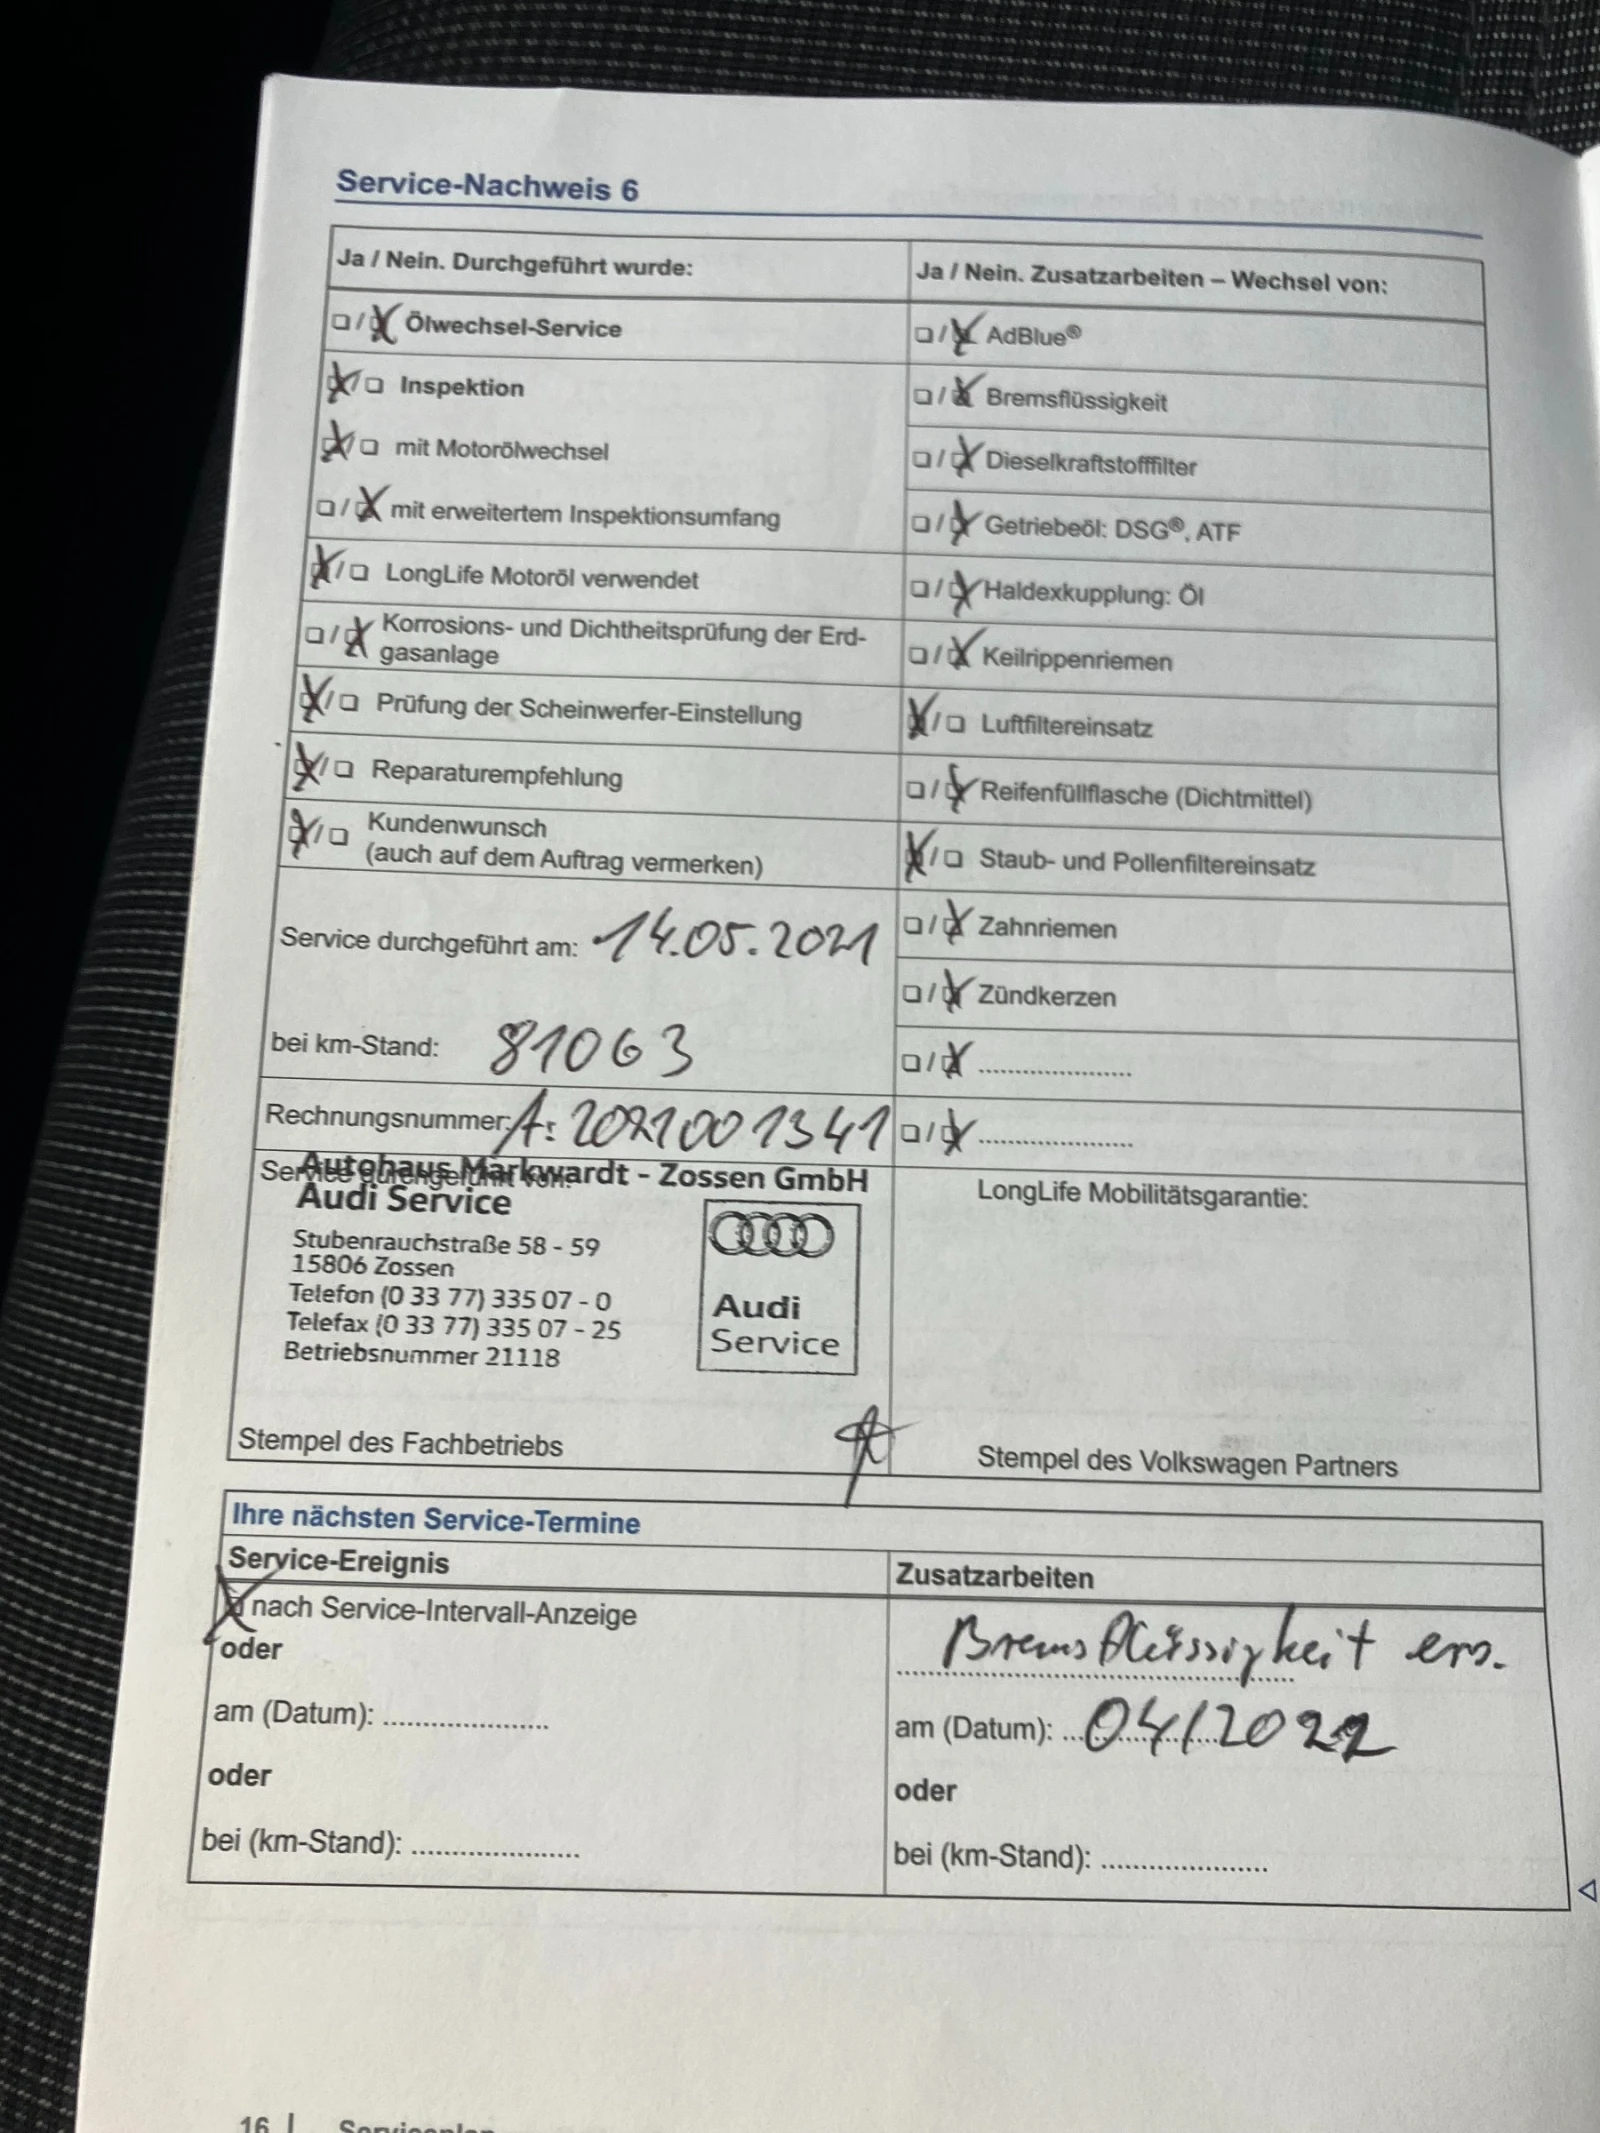 Service-Nachweis 6
Ja / Nein. Durchgeführt wurde:
Ölwechsel-Service
Inspektion
mit Motorölwechsel
mit erweitertem Inspektionsumfang
LongLife Motoröl verwendet
Korrosions- und Dichtheitsprüfung der Erd-
gasanlage
Prüfung der Scheinwerfer-Einstellung
Reparaturempfehlung
Kundenwunsch
(auch auf dem Auftrag vermerken)
Service durchgeführt am: 14.05.2021
bei km-Stand: 81063
Rechnungsnummer: A: 2021001341
Service durchgeführt von:
Autohaus Markwardt - Zossen GmbH
Audi Service
Stubenrauchstraße 58 - 59
15806 Zossen
Telefon (0 33 77) 335 07 - 0
Telefax (0 33 77) 335 07 - 25
Betriebsnummer 21118
Audi
Service
Stempel des Fachbetriebs
Ja / Nein. Zusatzarbeiten – Wechsel von:
AdBlue®
Bremsflüssigkeit
Dieselkraftstofffilter
Getriebeöl: DSG®, ATF
Haldexkupplung: Öl
Keilrippenriemen
Luftfiltereinsatz
Reifenfüllflasche (Dichtmittel)
Staub- und Pollenfiltereinsatz
Zahnriemen
Zündkerzen
LongLife Mobilitätsgarantie:
Stempel des Volkswagen Partners
Ihre nächsten Service-Termine
Service-Ereignis
nach Service-Intervall-Anzeige
oder
am (Datum): ......................
oder
bei (km-Stand): ......................
Zusatzarbeiten
Bremsflüssigkeit ers.
am (Datum): 04/2022
oder
bei (km-Stand): ......................
16 | Serviceplan